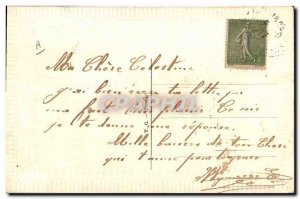 A
Ma Chère Célestine
j'ai bien reçu ta lettre qui
ma fait un plaisir Ce soir
je te donne une réponse.
Mille baisers de ton Cheri
qui t'aime pour toujours